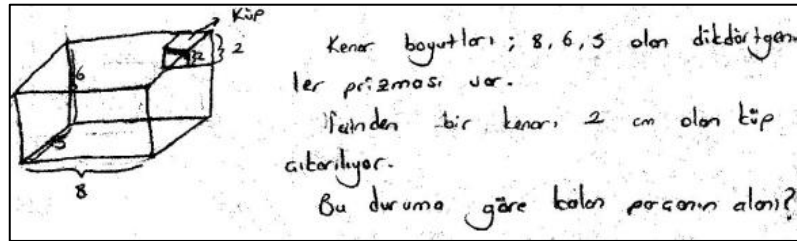 Küp
2
2
6
5
8
Kenar boyutları; 8, 6, 5 olan dikdörtgen
ler prizması var.
İçinden bir kenarı 2 cm olan küp
çıkarılıyor.
Bu duruma göre kalan parçanın alanı?